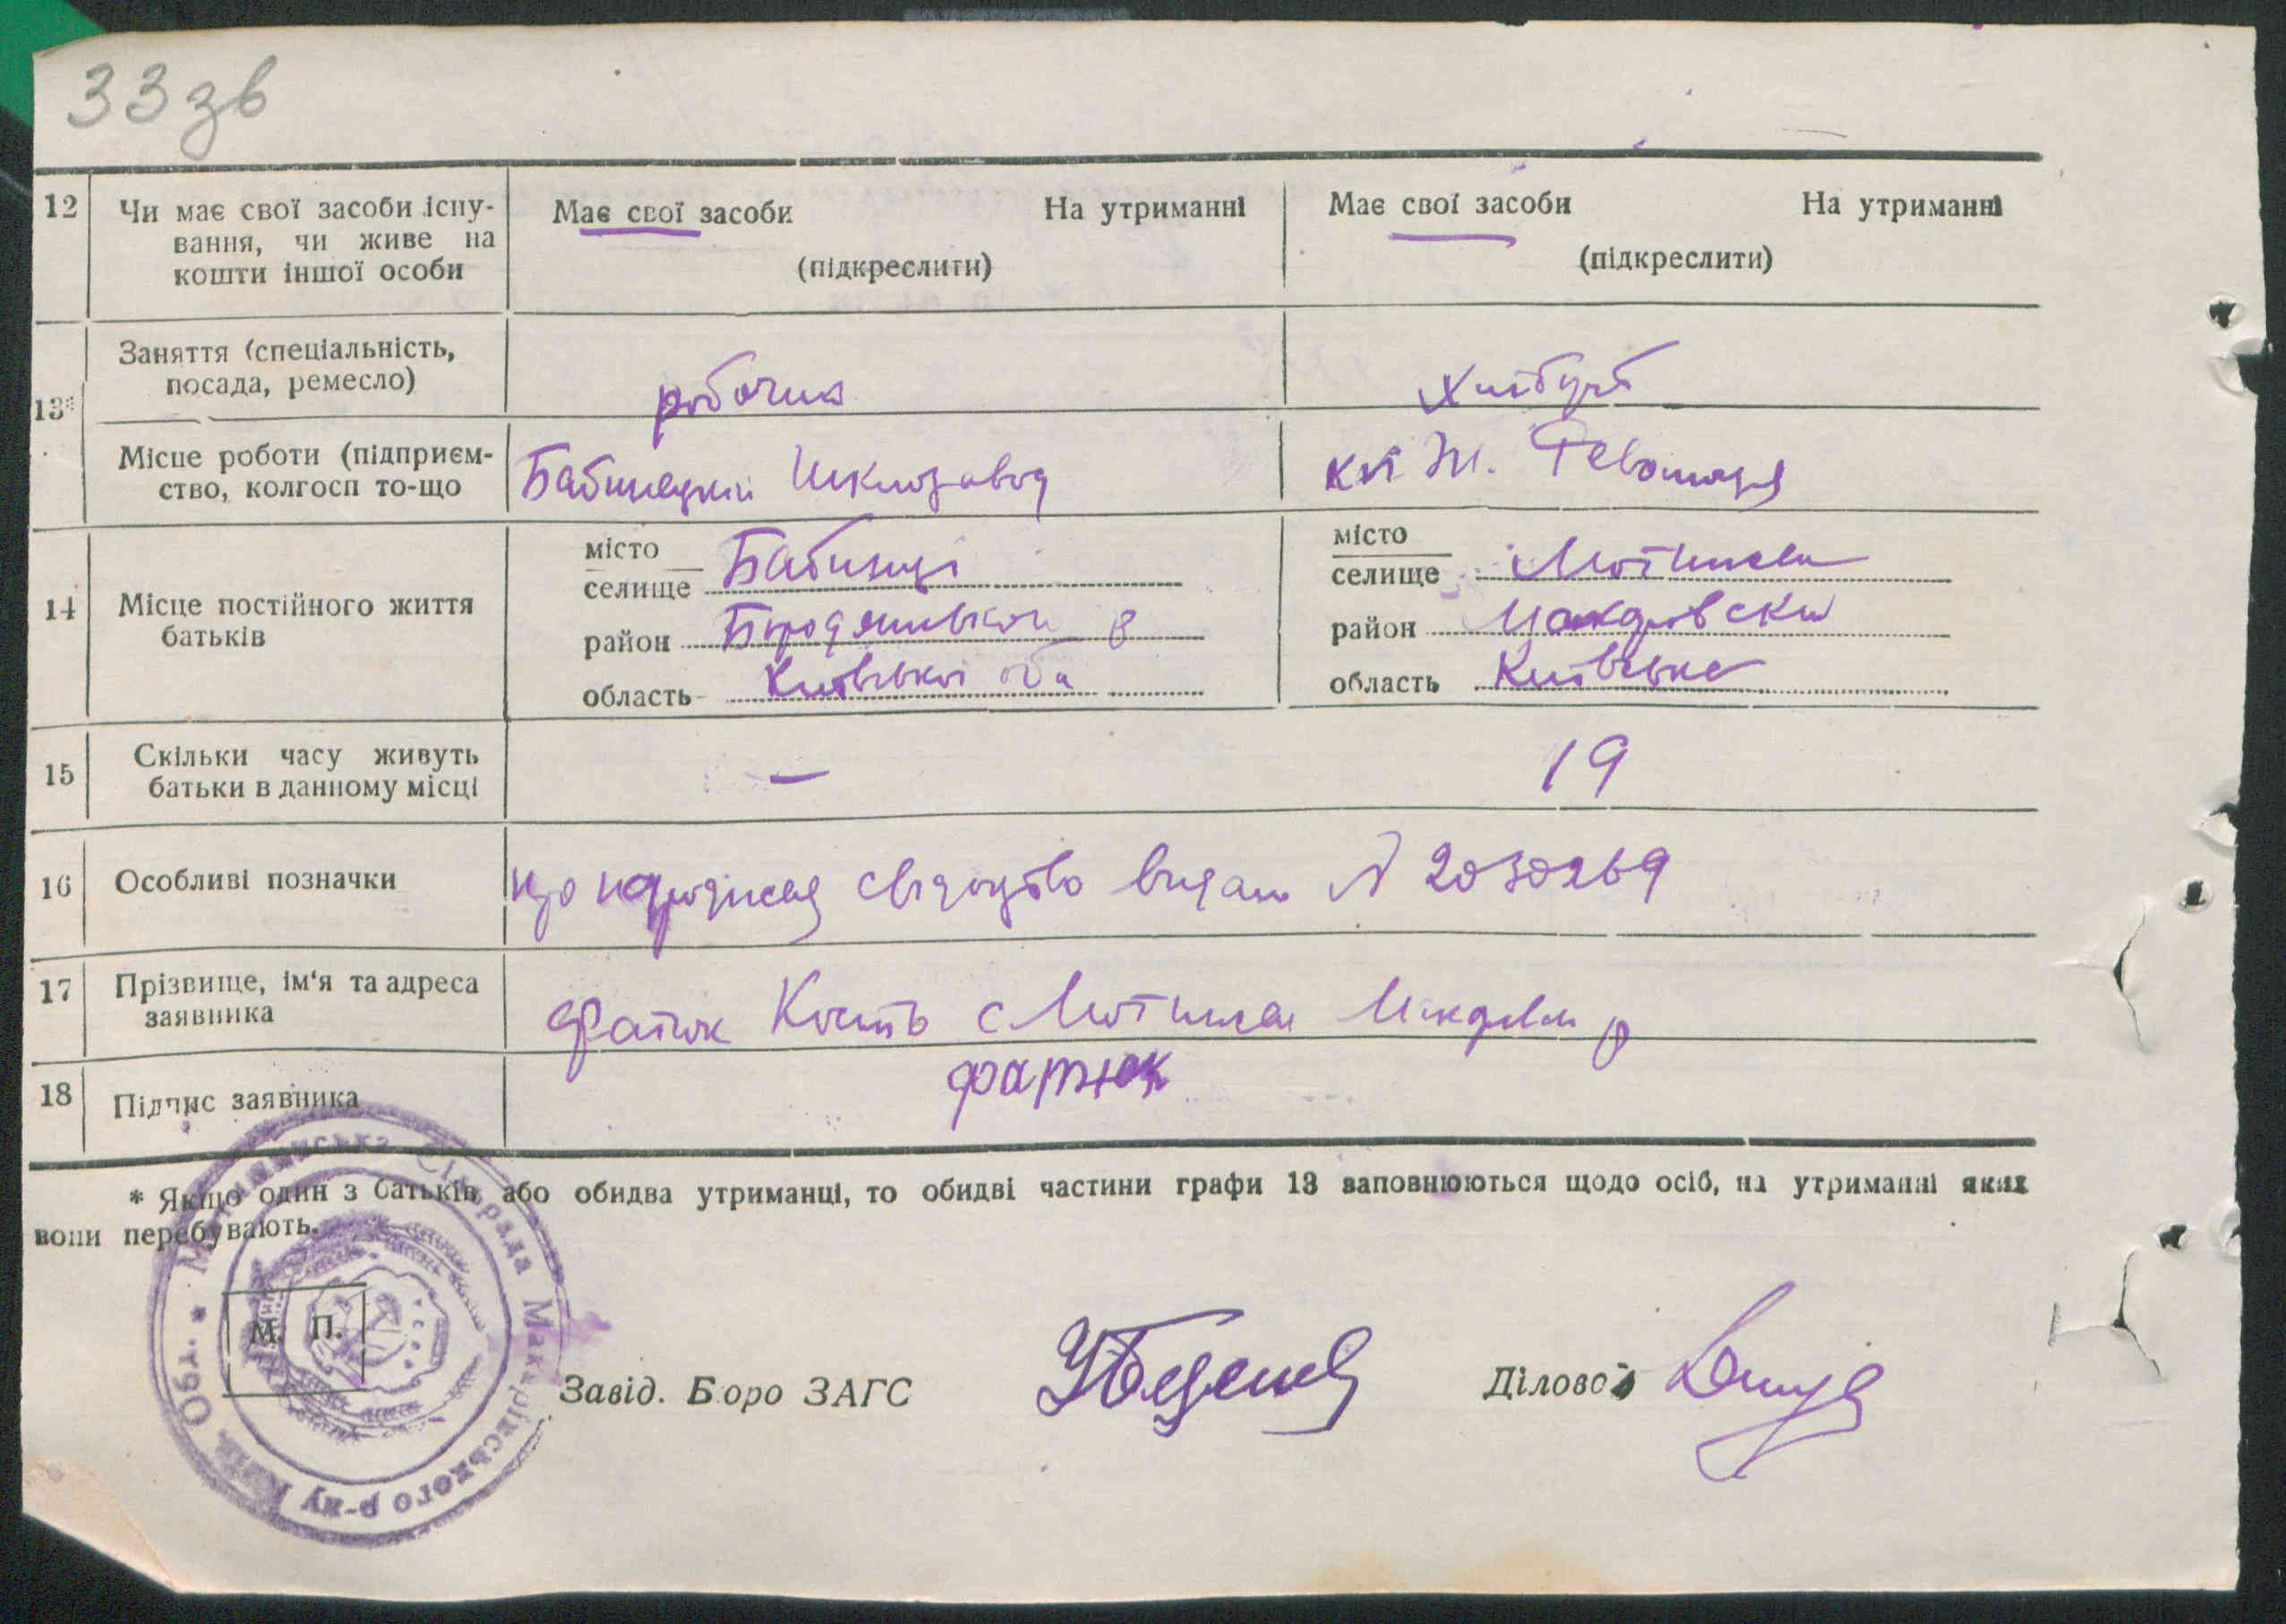 33 зв
12 Чи має свої засоби існу-
вання, чи живе на
кошти іншої особи
Має свої засоби На утриманні
(підкреслити)
Має свої засоби На утриманні
(підкреслити)
13*
Заняття (спеціальність,
посада, ремесло)
робочий
хлібороб
Місце роботи (підприєм-
ство, колгосп то-що
Бабинецкій Шклозавод
к-п Ж. Революція
14 Місце постійного життя
батьків
місто
селище Бабинці
район Бородянській р
область Київської об
місто
селище Мотижин
район Макарівски
область Київська
15 Скільки часу живуть
батьки в данному місці
—
19
16 Особливі позначки
що народження свідоцтво видано № 2030269
17 Прізвище, ім'я та адреса
заявника
Фатюк Кость с Мотижин Макарів р
18 Підпис заявника
фатюк
* Якщо один з батьків або обидва утриманці, то обидві частини графи 13 заповнюються щодо осіб, на утриманні яких
вони перебувають.
М. П.
Сільрада Макарівського р-ну Київ. Обл.
Завід. Бюро ЗАГС
Діловод